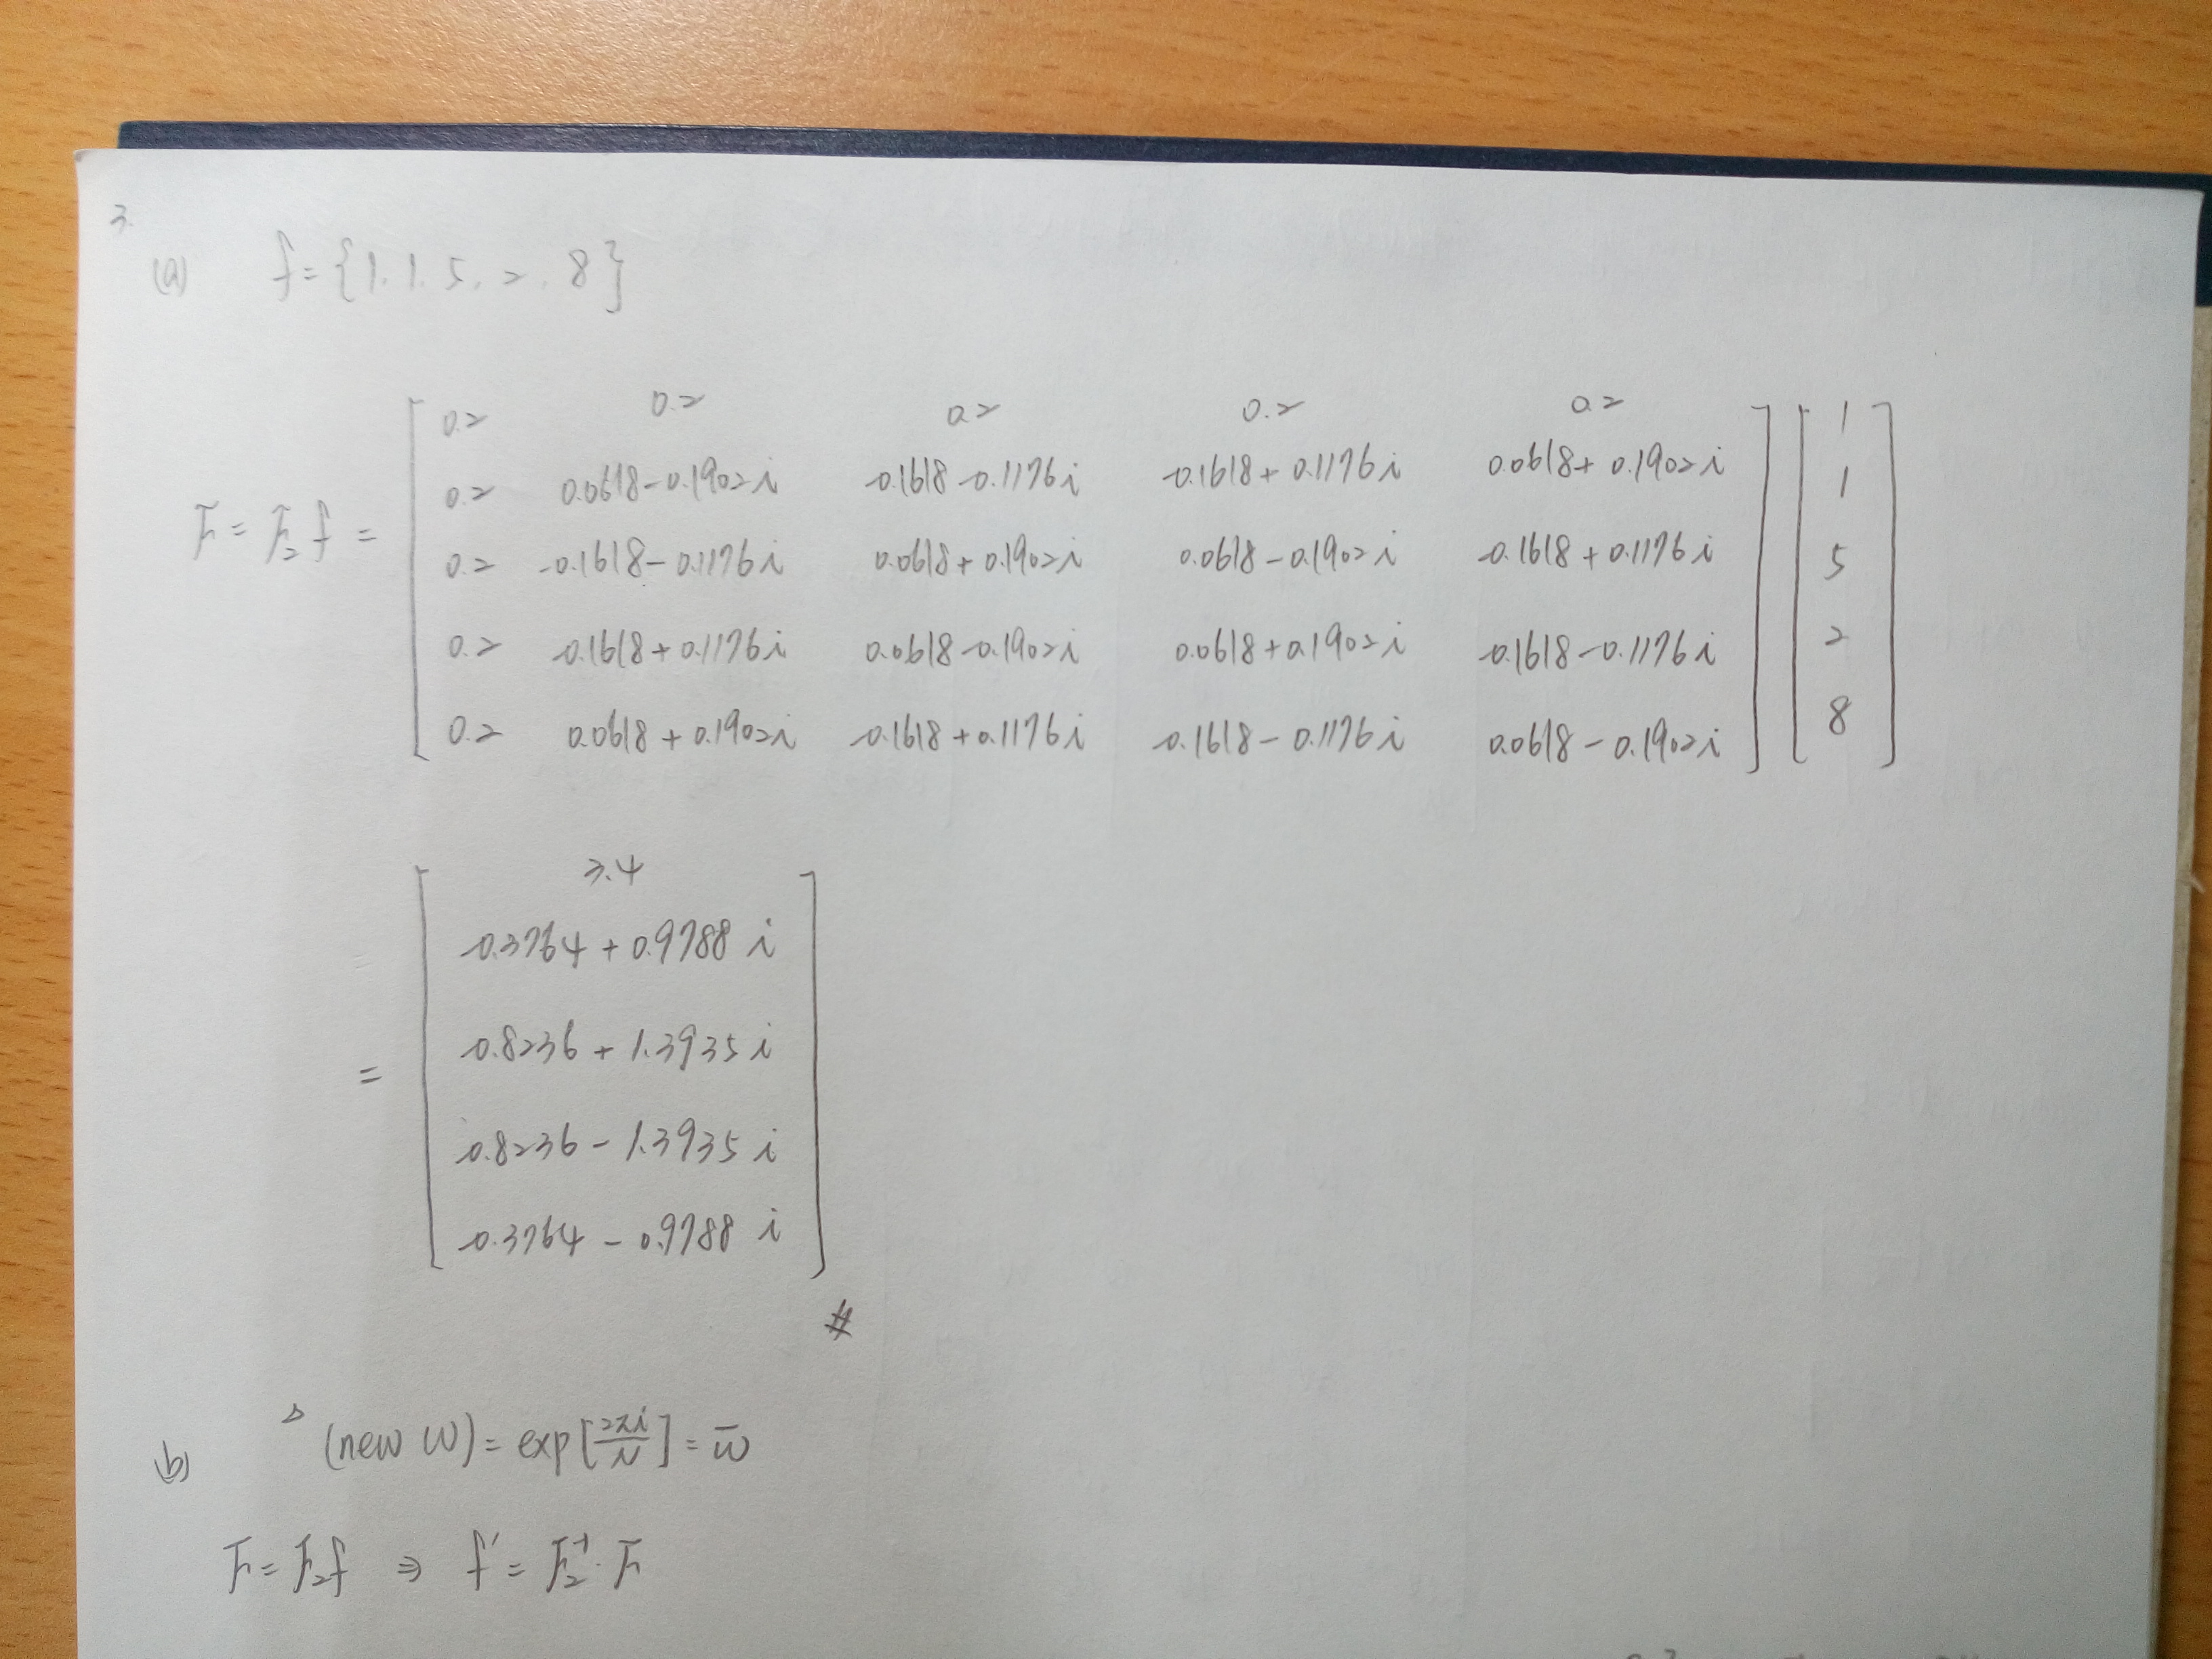 3.
(a) f = {1. 1. 5. 2. 8}
F = F₂ f = [ 0.2 0.2 0.2 0.2 0.2 ] [ 1 ]
0.2 0.0618-0.1902i -0.1618-0.1176i -0.1618+0.1176i 0.0618+0.1902i 1
0.2 -0.1618-0.1176i 0.0618+0.1902i 0.0618-0.1902i -0.1618+0.1176i 5
0.2 -0.1618+0.1176i 0.0618-0.1902i 0.0618+0.1902i -0.1618-0.1176i 2
0.2 0.0618+0.1902i -0.1618+0.1176i -0.1618-0.1176i 0.0618-0.1902i 8
= [ 3.4
-0.3764+0.9788 i
-0.8236+1.3935 i
-0.8236-1.3935 i
-0.3764-0.9788 i ] #
(b) (new W) = exp[2πi/N] = w̄
F = F₂f ⇒ f' = F₂⁻¹·F